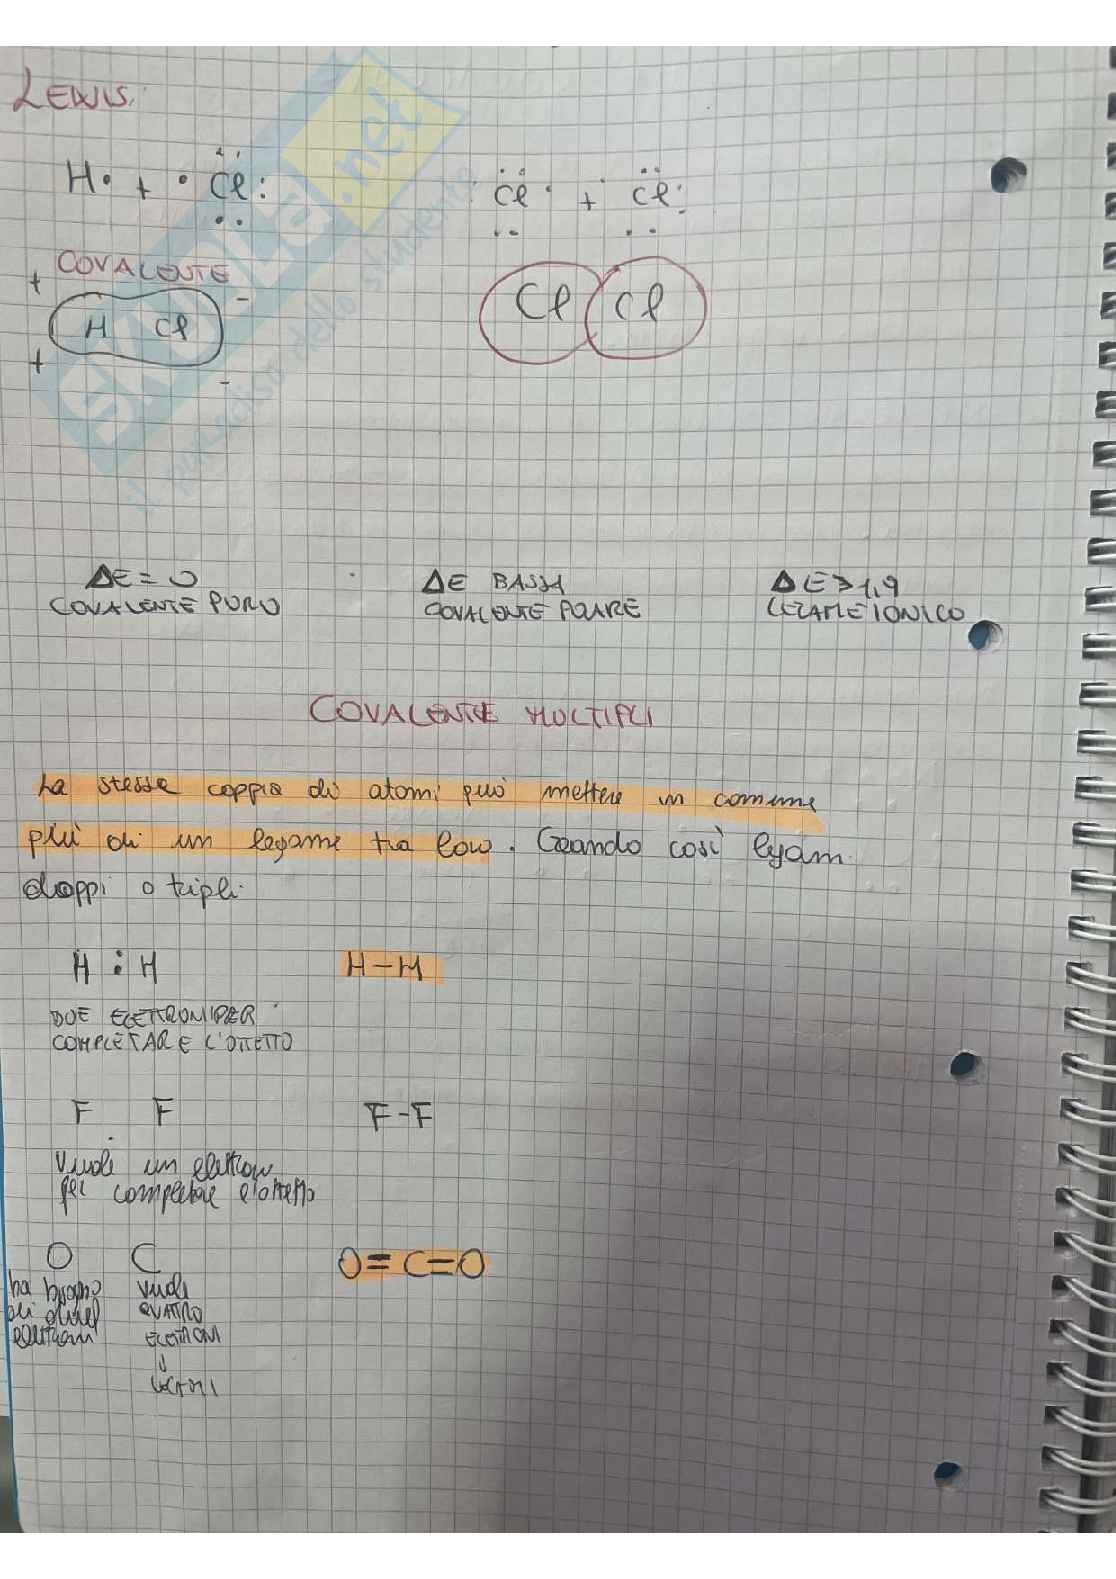 LEWIS.
H• + •Cl: Cl• + •Cl:
COVALENTE
+ -
H Cl Cl Cl
+ -
ΔE = 0 ΔE BASSA ΔE > 1,9
COVALENTE PURO COVALENTE POLARE LEGAME IONICO
COVALENTE MULTIPLI
La stessa coppia di atomi può mettere in comune
più di un legame tra loro. Creando così legami
doppi o tripli.
H : H H-H
DUE ELETTRONI PER
COMPLETARE L'OTTETTO
F F F-F
Vuole un elettrone
per completare l'ottetto
O C O=C=O
ha bisogno vuole
di due QUATTRO
elettroni ELETTRONI
↓
LEGAMI
SKUOLA.net
il paradiso dello studente